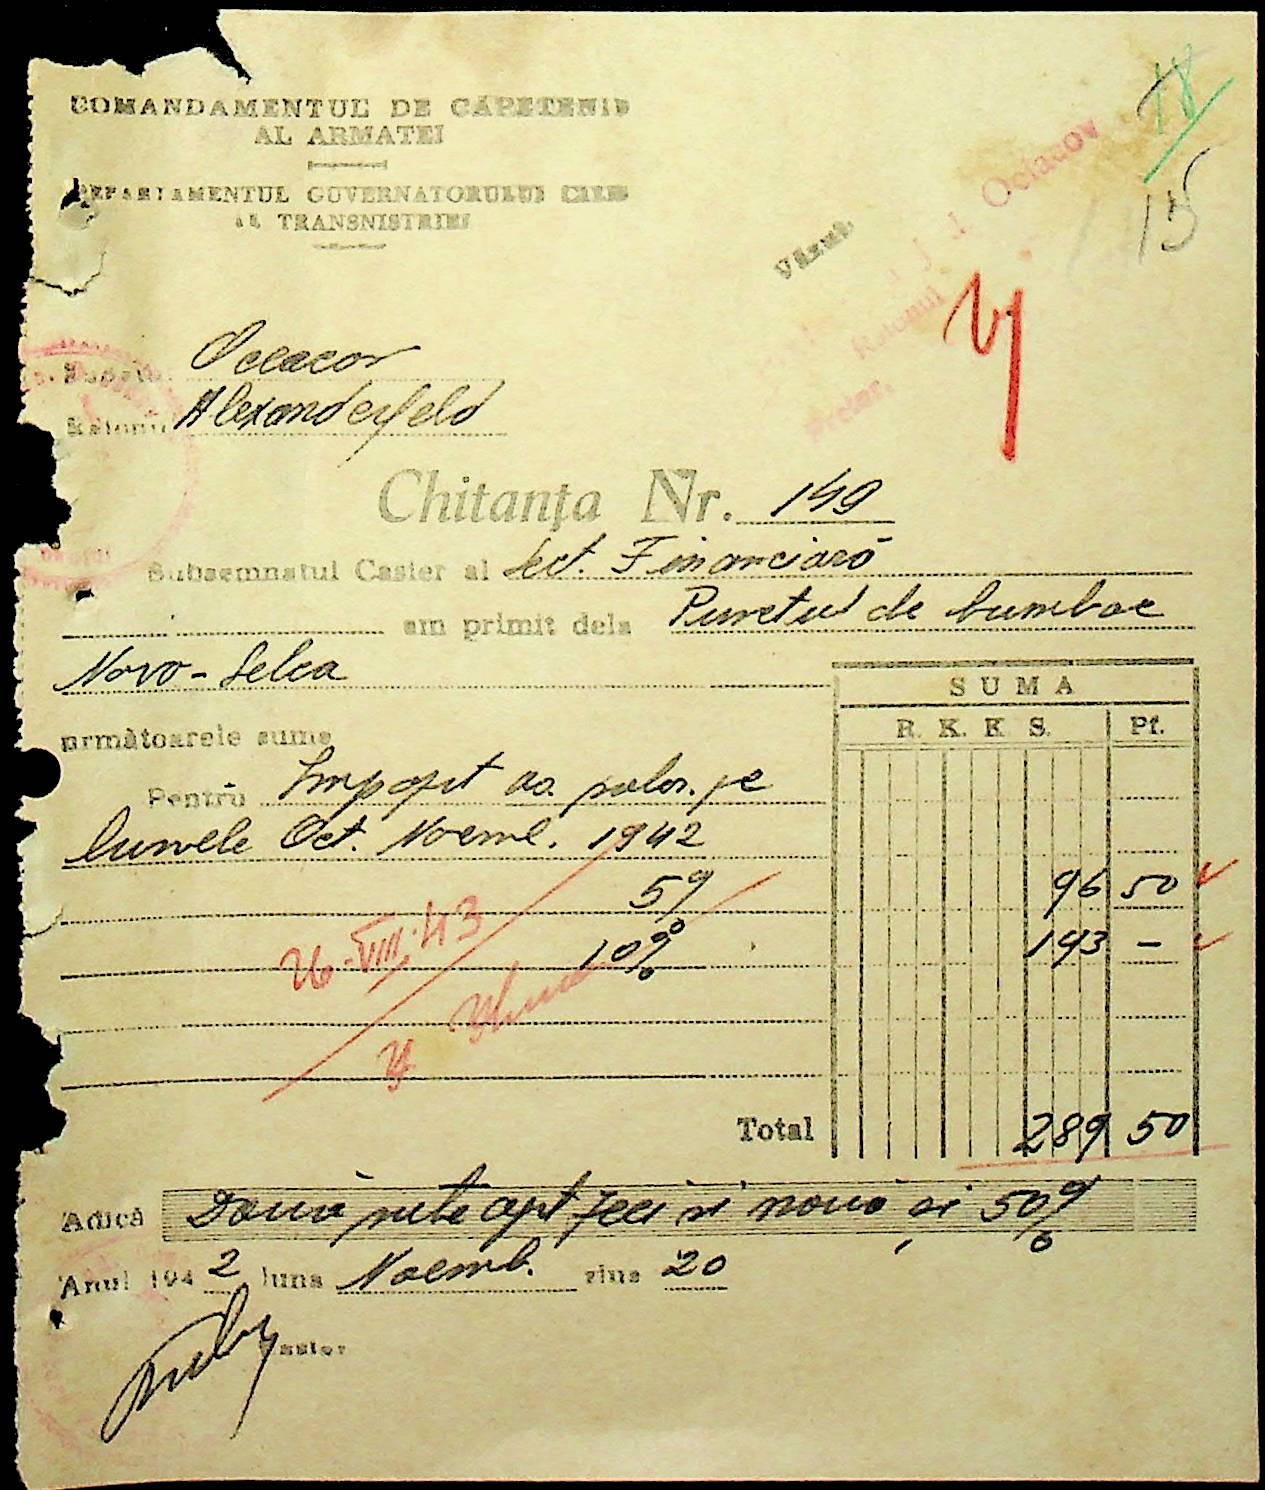 COMANDAMENTUL DE CĂPETENIE
AL ARMATEI
DEPARTAMENTUL GUVERNATORULUI CIVIL
AL TRANSNISTRIEI
18
15
Văzut
Oceacov
Raionul
Pretor,
Județul Oceacov
Raionul Alexanderfeld
Chitanța Nr. 149
Subsemnatul Casier al Sect. Financiară
am primit dela Punctul de bumbac
Novo-Selca
următoarele sume
SUMA
R. K. K. S. Pf.
Pentru Impozit as. salar. pe
lunele Oct. Noemb. 1942
5% 96 50
10% 193 –
26-VIII-43
Total 289 50
Adică Două sute opt zeci si nouă și 50%
Anul 1942 luna Noemb. ziua 20
Casier